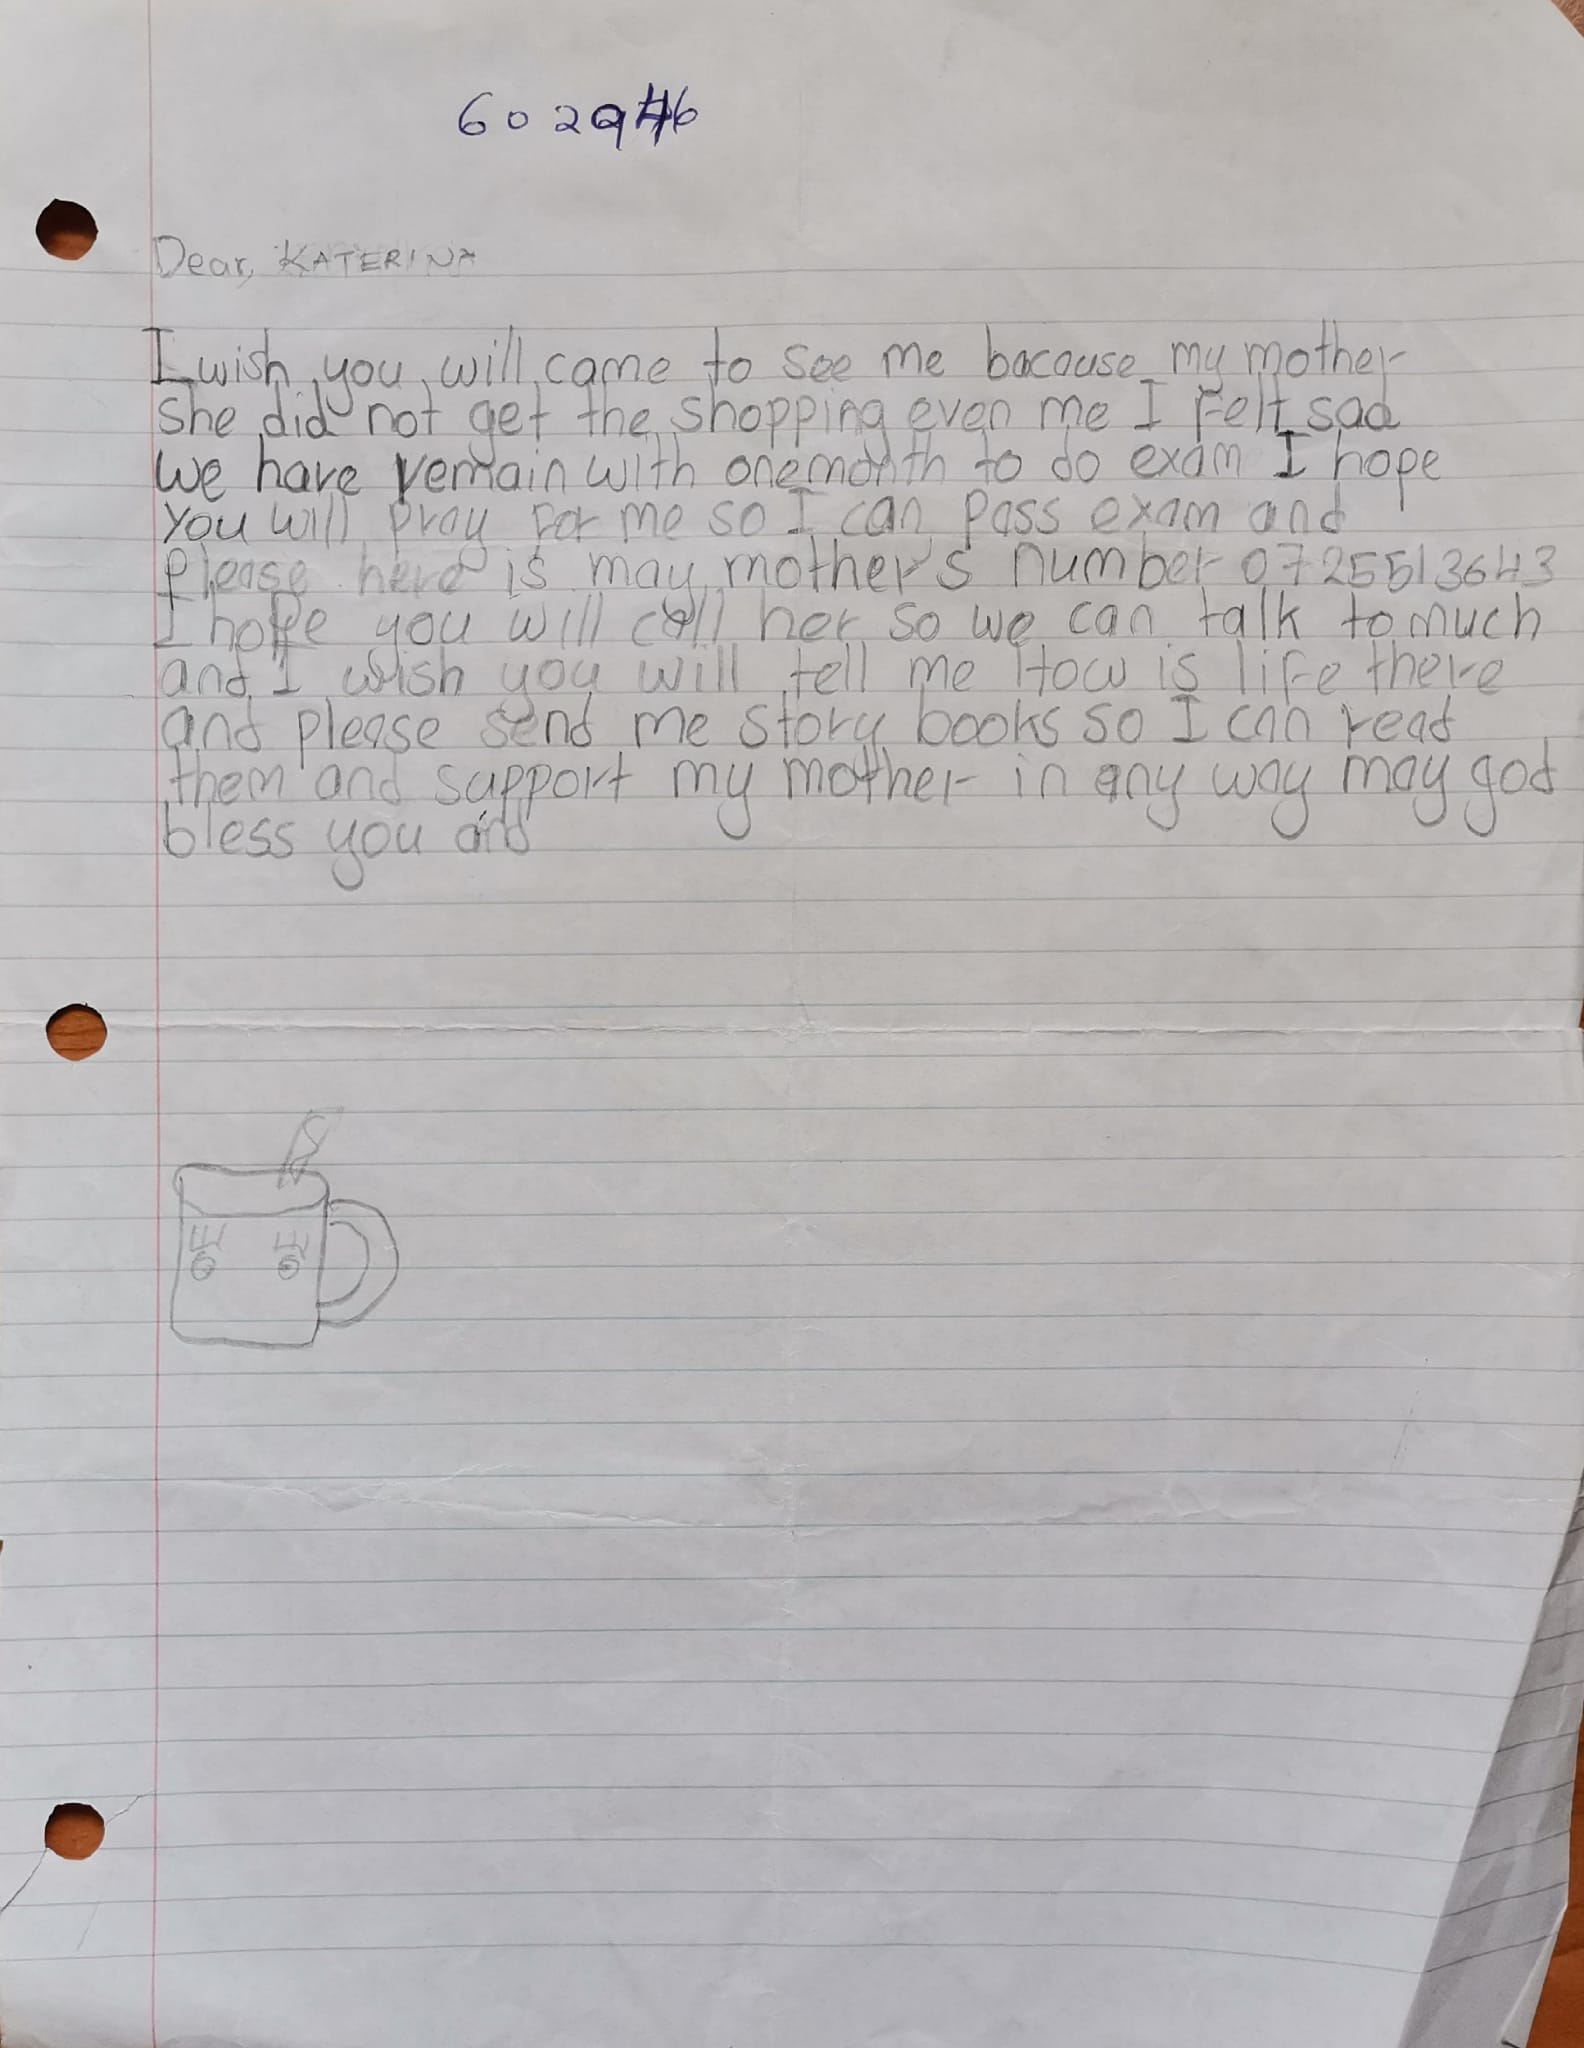 602946
Dear, KATERINA
I wish you will came to see me bacause my mother
she did not get the shopping even me I felt sad
we have remain with onemonth to do exam I hope
you will pray for me so I can pass exam and
please here is may mother's number 0725513643
I hope you will call her so we can talk to much
and I wish you will tell me How is life there
and please send me story books so I can read
them and support my mother in any way may god
bless you and